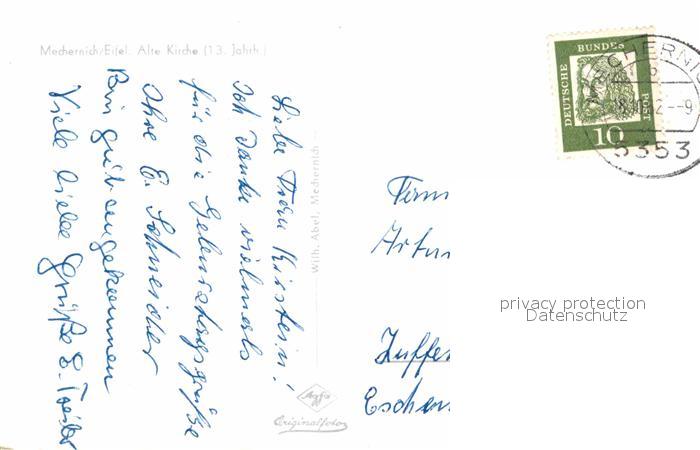 Mechernich/Eifel. Alte Kirche (13. Jahrh.)
Liebe Frau Kirstein!
Ich danke vielmals
für die Geburtstagsgrüße
Ihre E. Schneider
Bin gut angekommen
Viele liebe Grüße E.
Wilh. Abel, Mechernich
Agfa
Originalfoto
DEUTSCHE
BUNDES
POST
10
MECHERNI
2--9
5353
Firm
Artur
Zuffe
Eschen
privacy protection
Datenschutz